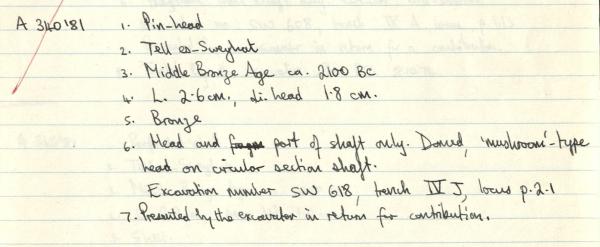 A 340'81 1. Pin-head
2. Tell es-Sweyhat
3. Middle Bronze Age ca. 2100 BC
4. L. 2.6cm., di. head 1.8 cm.
5. Bronze
6. Head and part of shaft only. Domed, 'mushroom'-type
head on circular section shaft.
Excavation number SW 618, trench IV J, locus p.2.1
7. Presented by the excavator in return for contribution.